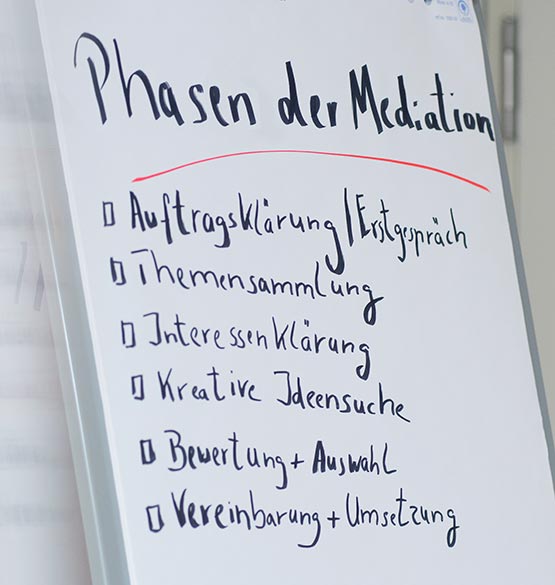 Phasen der Mediation
Auftragsklärung/Erstgespräch
Themensammlung
Interessenklärung
Kreative Ideensuche
Bewertung + Auswahl
Vereinbarung + Umsetzung